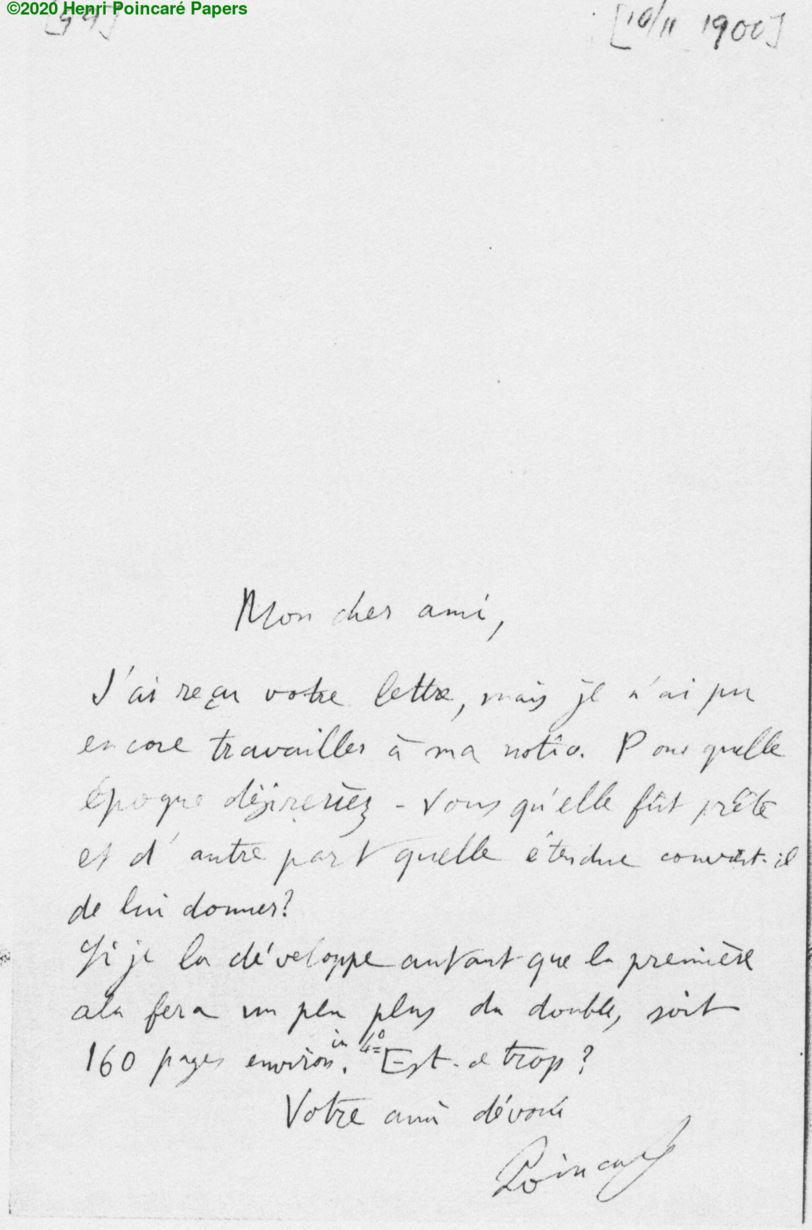 ©2020 Henri Poincaré Papers
[10/11 1900]
Mon cher ami,
J'ai reçu votre lettre, mais je n'ai pu
encore travailler à ma notice. Pour quelle
époque désireriez-vous qu'elle fût prête
et d'autre part quelle étendue convient-il
de lui donner?
Si je la développe autant que la première
cela fera un peu plus du double, soit
160 pages environ in 4º. Est-ce trop?
Votre ami dévoué
Poincaré